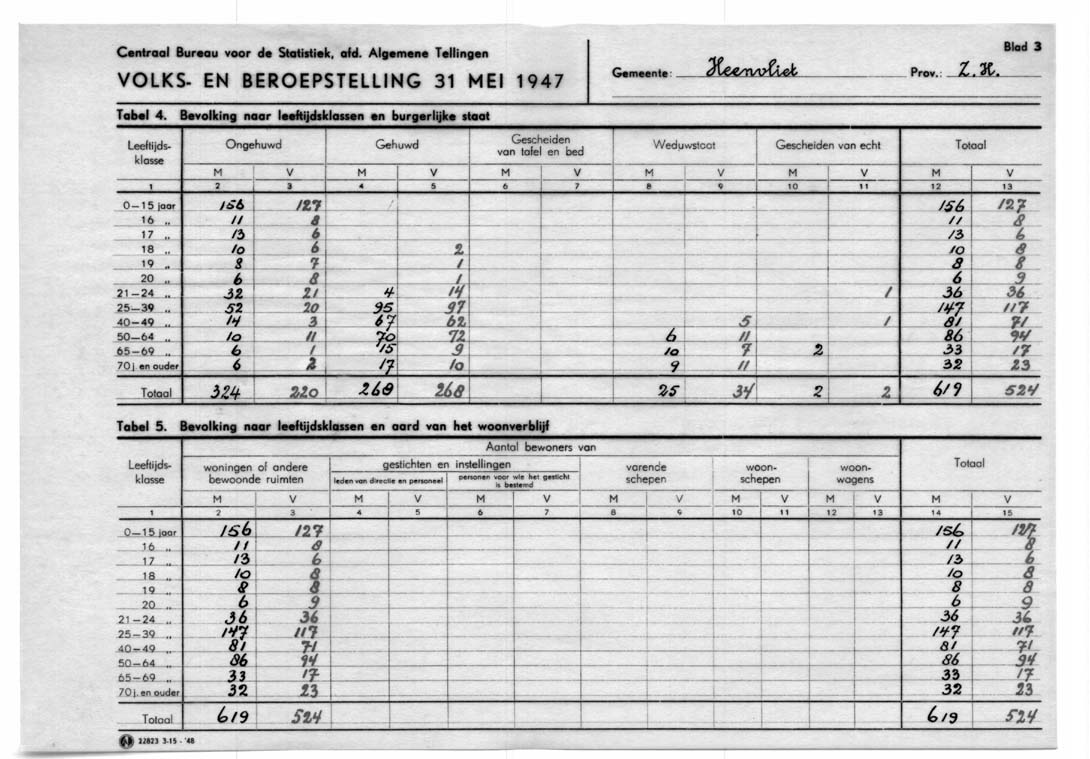 Centraal Bureau voor de Statistiek, afd. Algemene Tellingen
VOLKS- EN BEROEPSTELLING 31 MEI 1947
Gemeente: Heenvliet Prov.: Z.H.
Blad 3
Tabel 4. Bevolking naar leeftijdsklassen en burgerlijke staat
Leeftijds-klasse Ongehuwd Gehuwd Gescheiden van tafel en bed Weduwstaat Gescheiden van echt Totaal
M V M V M V M V M V M V
1 2 3 4 5 6 7 8 9 10 11 12 13
0—15 jaar 156 127 156 127
16 „ 11 8 11 8
17 „ 13 6 13 6
18 „ 10 6 2 10 8
19 „ 8 7 1 8 8
20 „ 6 8 1 6 9
21—24 „ 32 21 4 14 1 36 36
25—39 „ 52 20 95 97 147 117
40—49 „ 14 3 67 62 5 1 81 71
50—64 „ 10 11 70 72 6 11 86 94
65—69 „ 6 1 15 9 10 7 2 33 17
70 j. en ouder 6 2 17 10 9 11 32 23
Totaal 324 220 268 268 25 34 2 2 619 524
Tabel 5. Bevolking naar leeftijdsklassen en aard van het woonverblijf
Leeftijds-klasse Aantal bewoners van Totaal
woningen of andere bewoonde ruimten gestichten en instellingen varende schepen woon-schepen woon-wagens
leden van directie en personeel personen voor wie het gesticht is bestemd
M V M V M V M V M V M V M V
1 2 3 4 5 6 7 8 9 10 11 12 13 14 15
0—15 jaar 156 127 156 127
16 „ 11 8 11 8
17 „ 13 6 13 6
18 „ 10 8 10 8
19 „ 8 8 8 8
20 „ 6 9 6 9
21—24 „ 36 36 36 36
25—39 „ 147 117 147 117
40—49 „ 81 71 81 71
50—64 „ 86 94 86 94
65—69 „ 33 17 33 17
70 j. en ouder 32 23 32 23
Totaal 619 524 619 524
22823 3-15 - '48